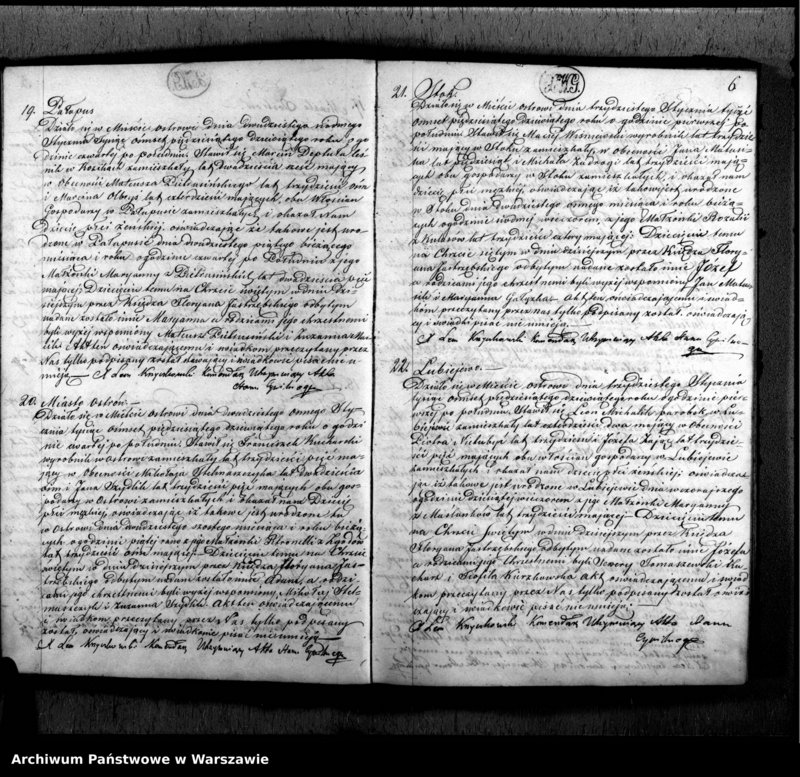 19. Pałapus
Działo się w Mieście Ostrowi dnia dwudziestego siódmego
Stycznia Tysiąc Ośmset pięćdziesiątego dziewiątego roku o go
dzinie czwarty po południu. Stawił się Marcin Deptuła
w zamieszkały lat dwadzieścia sześć mający
w Obecności Mateusza Bieluńskiego lat trzydzieści
i Marcina lat czterdzieści mających, obu Włościan
Gospodarzy w Pałapusie zamieszkałych i okazał Nam
Dziecię płci żeńskiej oświadczając że takowe jest uro
dzone w Pałapusie dnia dwudziestego piątego bieżącego
miesiąca i roku o godzinie czwarty po Południu z jego
Małżonki Maryanny z lat dwadzieścia
mającej Dziecięciu temu na Chrzcie świętym w dniu dzi
siejszym przez Księdza Floryana Jastrzębskiego odbytym
nadane zostało imie Maryanna a rodzicami jego chrzestnemi
byli wyżej wspomniony Mateusz Bieluński i Zuzanna
Akt ten oświadczającemu i świadkom przeczytany przez
Nas tylko podpisany został stawający i świadkowie pisać nie u
mieją. — X Leon Krysikowski Komendarz Utrzymujący Akta
Stanu Cywilnego
20. Miasto Ostrów. —
Działo się w Mieście Ostrowi dnia dwudziestego ósmego Sty
cznia tysiąc ośmset pięćdziesiątego dziewiątego roku o godzi
nie czwartej po południu. Stawił się Franciszek Kucharski
wyrobnik w Ostrowi zamieszkały lat trzydzieści pięć ma
jący w Obecności Mikołaja Stelmaszczyka lat dwadzieścia
ośm i Jana lat trzydzieści pięć mających obu gos
podarzy w Ostrowi zamieszkałych i okazał nam Dziecię
płci męzkiej, oświadczając iż takowe jest urodzone tu
w Ostrowi dnia dwudziestego szóstego miesiąca i roku bieżą
cych o godzinie piątej rano z jego Małżonki Petronelli z
lat trzydzieści ośm mającej. Dziecięciu temu na Chrzcie
świętym w dniu dzisiejszym przez Księdza Floryana Jas
trzębskiego odbytym nadane zostało imie Adam, a rodzi
cami jego chrzestnemi byli wyżej wspomniony Mikołaj Stel
maszczyk i Zuzanna Akt ten oświadczającemu
i świadkom przeczytany przez Nas tylko podpisany
został, oświadczający i świadkowie pisać nie umieją —
X Leon Krysikowski Komendarz Utrzymujący Akta Stanu Cywilnego
6
21. Stok.
Działo się w Mieście Ostrowi dnia trzydziestego Stycznia tysiąc
ośmset pięćdziesiątego dziewiątego roku o godzinie pierwszej po
południu. Stawił się Maciej Wiśniewski wyrobnik lat trzydzie
ści mający w Stoku zamieszkały, w obecności Jana
lat pięćdziesiąt i Michała lat trzydzieści mają
cych obu gospodarzy w Stoku zamieszkałych, i okazał nam
dziecię płci męzkiej oświadczając iż takowe jest urodzone
w Stoku dnia dwudziestego ósmego miesiąca i roku bieżą
cych o godzinie siódmej wieczorem z jego Małżonki Rozalii
z lat trzydzieści cztery mającej. Dziecięciu temu
na Chrzcie świętym w dniu dzisiejszym przez Księdza Flory
ana Jastrzębskiego odbytym nadane zostało imie Józef
a rodzicami jego chrzestnemi byli wyżej wspomniony Jan
i Maryanna Akt ten oświadczającemu i świad
kom przeczytany przez Nas tylko podpisany został, oświadczają
cy i świadki pisać nie umieją —
X Leon Krysikowski Komendarz Utrzymujący Akta Stanu Cywilne
go
22. Lubiejewo. —
Działo się w Mieście Ostrowi dnia trzydziestego Stycznia
tysiąc ośmset pięćdziesiątego dziewiątego roku o godzinie pier
wszej po południu. Stawił się Leon Michalik parobek w Lu
biejewie zamieszkały lat czterdzieści dwa mający w Obecności
Piotra lat trzydzieści i Józefa Zając lat trzydzie
ści pięć mających obu włościan gospodarzy w Lubiejewie
zamieszkałych i okazał nam dziecię płci żeńskiej oświadcza
jąc iż takowe jest urodzone w Lubiejewie dnia wczorajszego
o godzinie dziewiątej wieczorem z jego Małżonki Maryanny
z lat trzydzieści mającej Dziecięciu temu
na Chrzcie Świętym w dniu dzisiejszym przez Księdza
Floryana Jastrzębskiego odbytym nadane zostało imie Józefa
a rodzicami jego Chrzestnemi byli Tomaszewski
i Teofila Kurzkowska Akt oświadczającemu i świad
kom przeczytany przez Nas tylko podpisany został oświad
czający i świadkowie pisać nie umieją. —
X Leon Krysikowski Komendarz Utrzymujący Akta Stanu
Cywilnego
Archiwum Państwowe w Warszawie